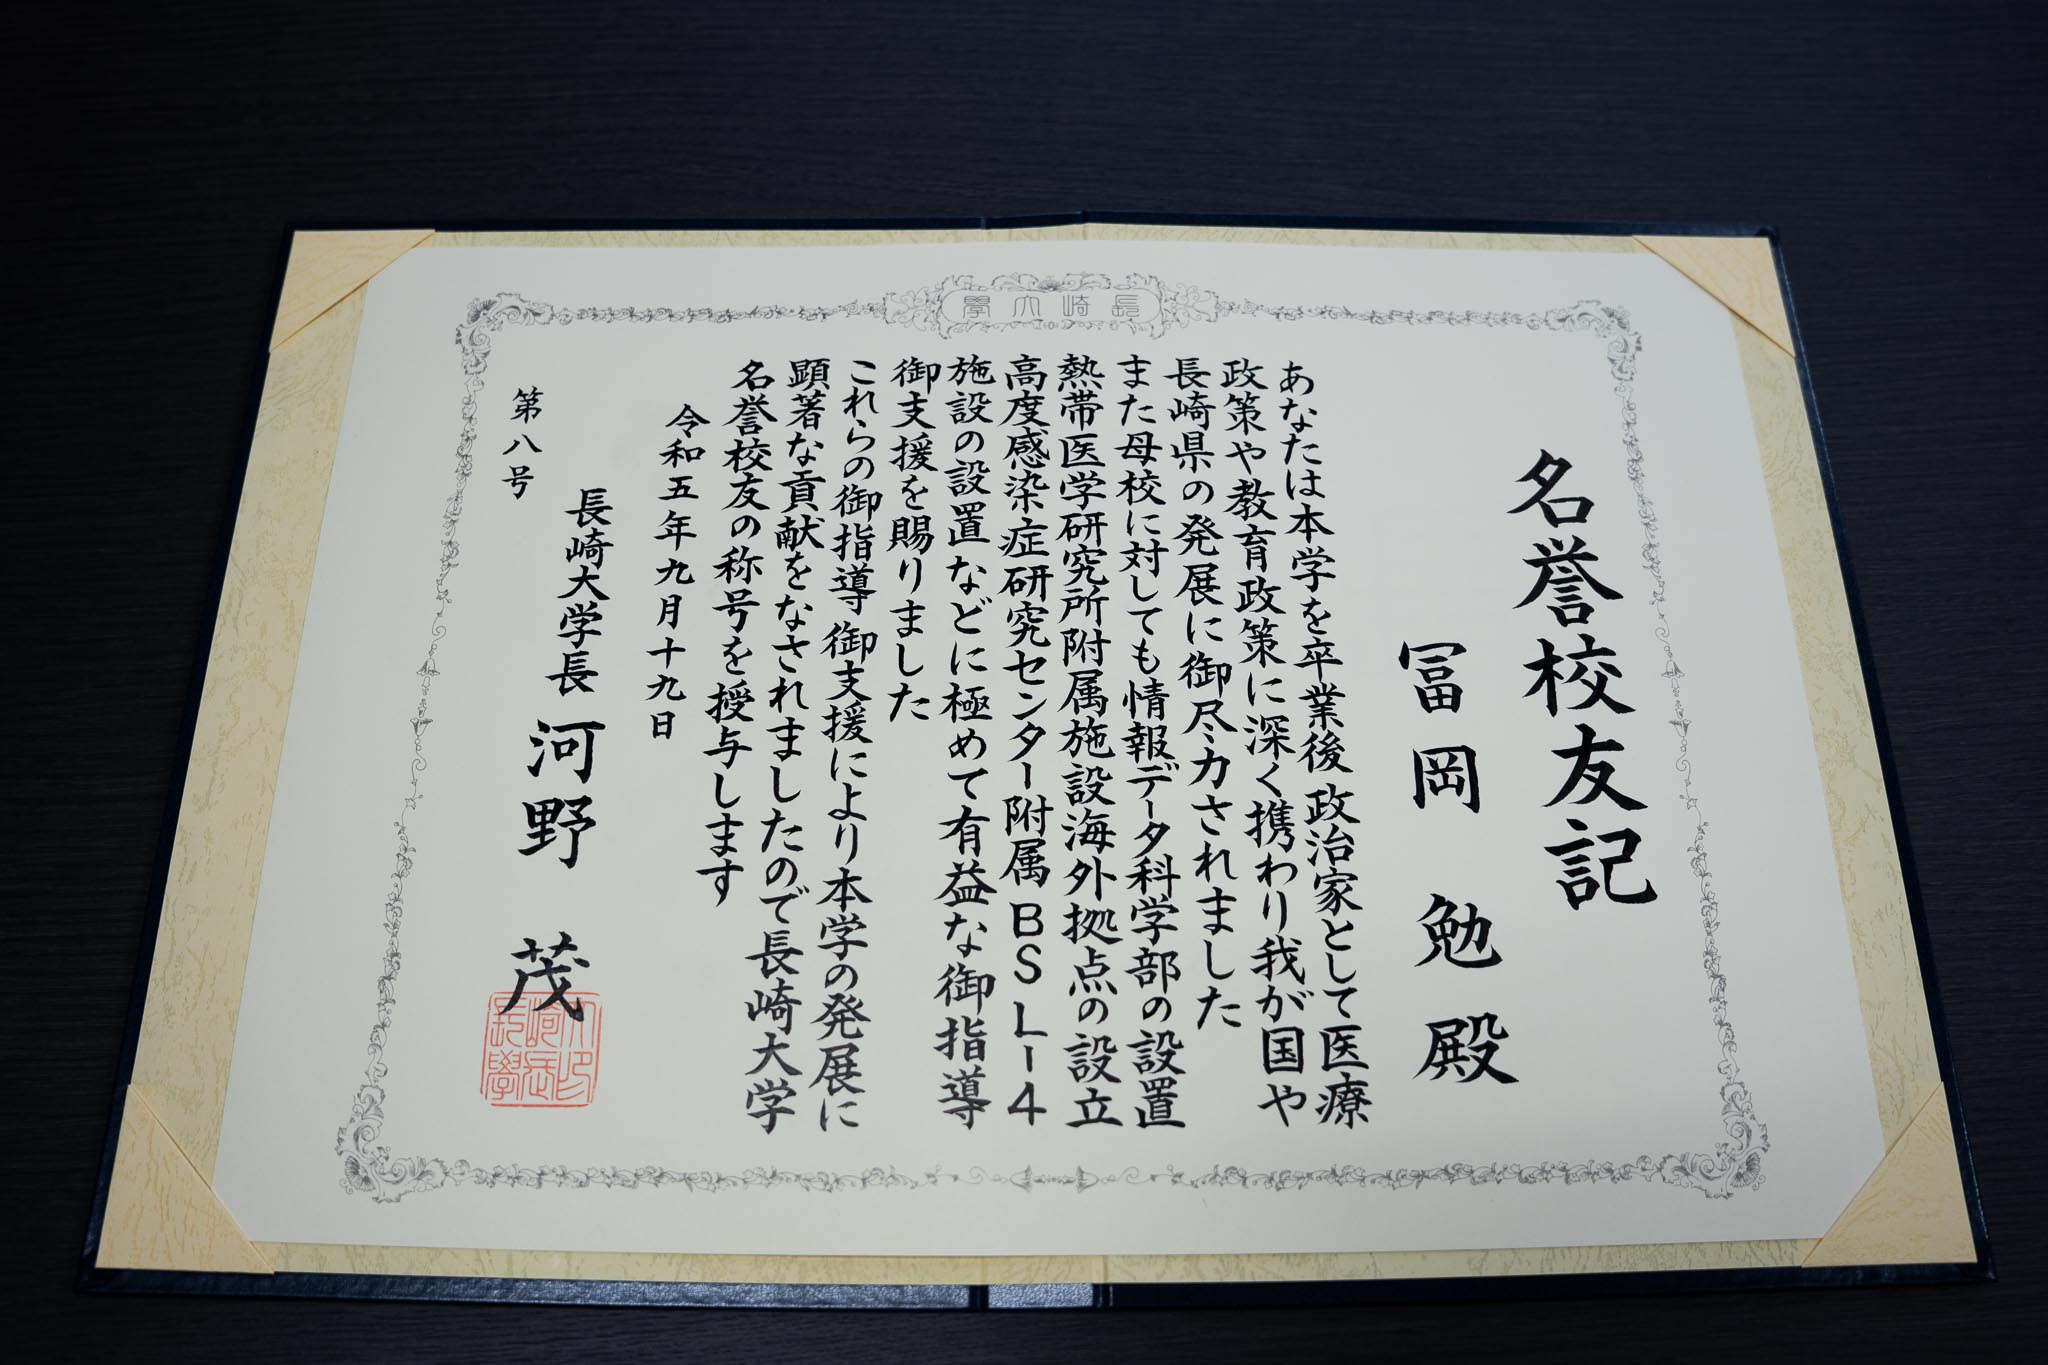 長崎大學
名誉校友記
冨岡 勉 殿
あなたは本学を卒業後政治家として医療
政策や教育政策に深く携わり我が国や
長崎県の発展に御尽力されました
また母校に対しても情報データ科学部の設置
熱帯医学研究所附属施設海外拠点の設立
高度感染症研究センター附属BSL-4
施設の設置などに極めて有益な御指導
御支援を賜りました
これらの御指導御支援により本学の発展に
顕著な貢献をなされましたので長崎大学
名誉校友の称号を授与します
令和五年九月十九日
長崎大学長 河野 茂
第八号